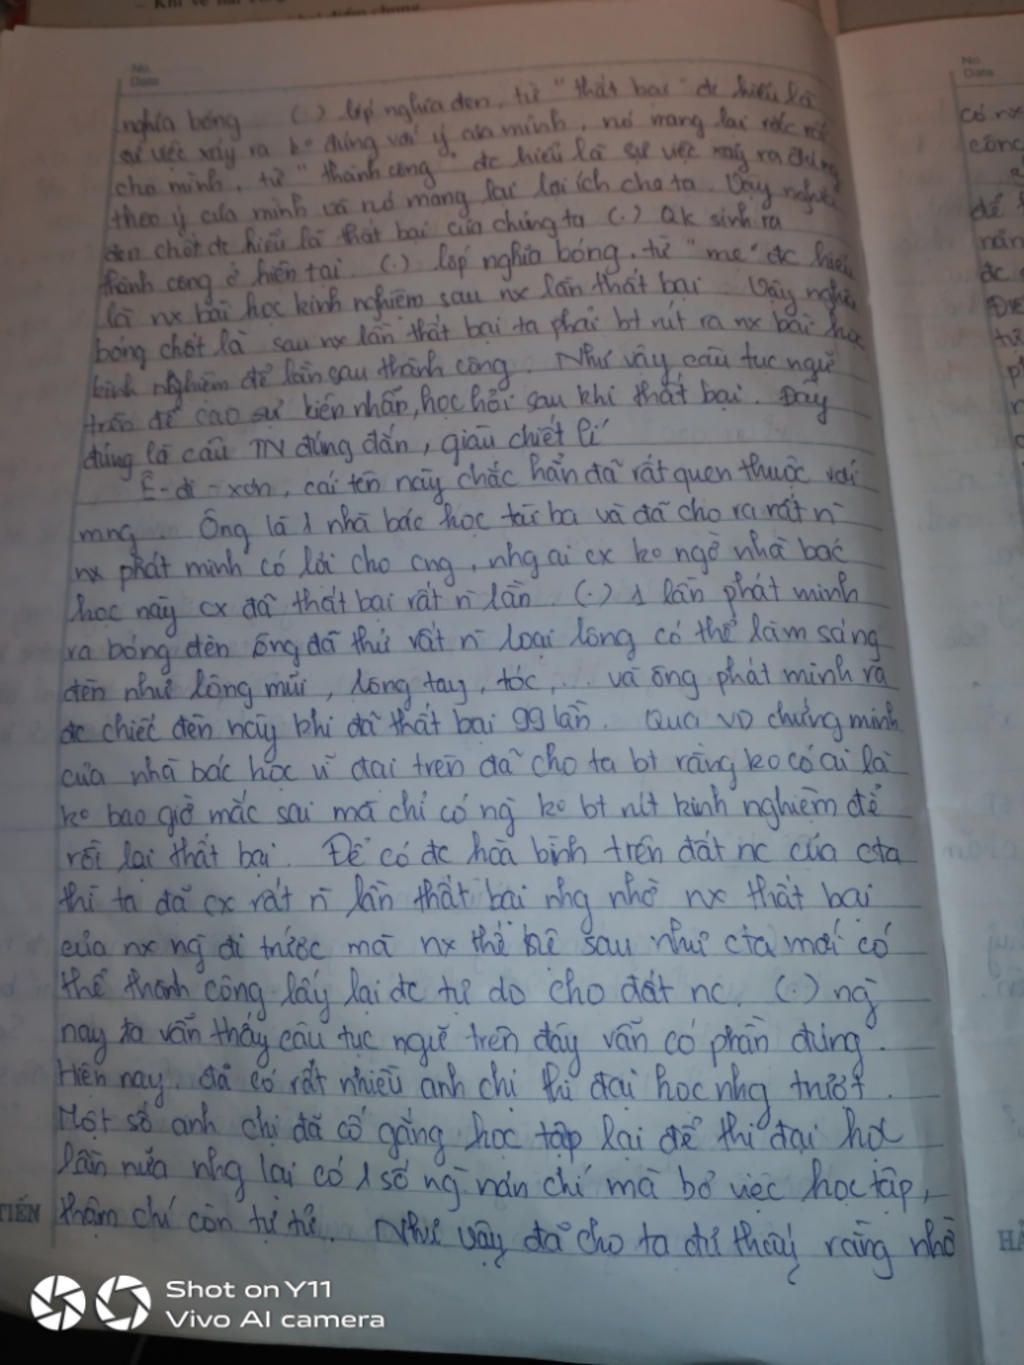 No.
Date
nghĩa bóng. (.) lớp nghĩa đen, từ "thất bại" đc hiểu là
sự việc xảy ra ko đúng với ý của mình, nó mang lại
cho mình, từ "thành công" đc hiểu là sự việc xảy ra đúng
theo ý của mình và nó mang lại lợi ích cho ta. Vậy nghĩa
đen chốt đc hiểu là thất bại của chúng ta (.) Qk sinh ra
thành công ở hiện tại. (.) lớp nghĩa bóng, từ "mẹ" đc hiểu
là nx bài học kinh nghiệm sau nx lần thất bại. Vậy nghĩa
bóng chốt là sau nx lần thất bại ta phải bt rút ra nx bài học
kinh nghiệm để lần sau thành công. Như vậy câu tục ngữ
trên đề cao sự kiên nhẫn, học hỏi sau khi thất bại. Đây
đúng là câu TN đúng đắn, giàu chiết lí
Ê-đi-xơn, cái tên này chắc hẳn đã rất quen thuộc với
mng. Ông là 1 nhà bác học tài ba và đã cho ra rất n̄
nx phát minh có lợi cho cng, nhg ai cx ko ngờ nhà bác
học này cx đã thất bại rất n̄ lần. (.) 1 lần phát minh
ra bóng đèn ông đã thử rất n̄ loại lông có thể làm sáng
đèn như lông mũi, lông tay, tóc,... và ông phát minh ra
đc chiếc đèn này khi đã thất bại 99 lần. Qua VD chứng minh
của nhà bác học vĩ đại trên đã cho ta bt rằng ko có ai là
ko bao giờ mắc sai mà chỉ có ng̀ ko bt rút kinh nghiệm để
rồi lại thất bại. Để có đc hoà bình trên đất nc của cta
thì ta đã cx rất n̄ lần thất bại nhg nhờ nx thất bại
của nx ng̀ đi trước mà nx thế hệ sau như cta mới có
thể thành công lấy lại đc tự do cho đất nc. (.) ng̀
nay ta vẫn thấy câu tục ngữ trên đây vẫn có phần đúng.
Hiện nay, đã có rất nhiều anh chị thi đại học nhg trượt.
Một số anh chị đã cố gắng học tập lại để thi đại học
lần nữa nhg lại có 1 số ng̀ nản chí mà bỏ việc học tập,
thậm chí còn tự tử. Như vậy đã cho ta đủ thấy rằng nhờ
TIẾN
No.
Date
Shot on Y11
Vivo AI camera